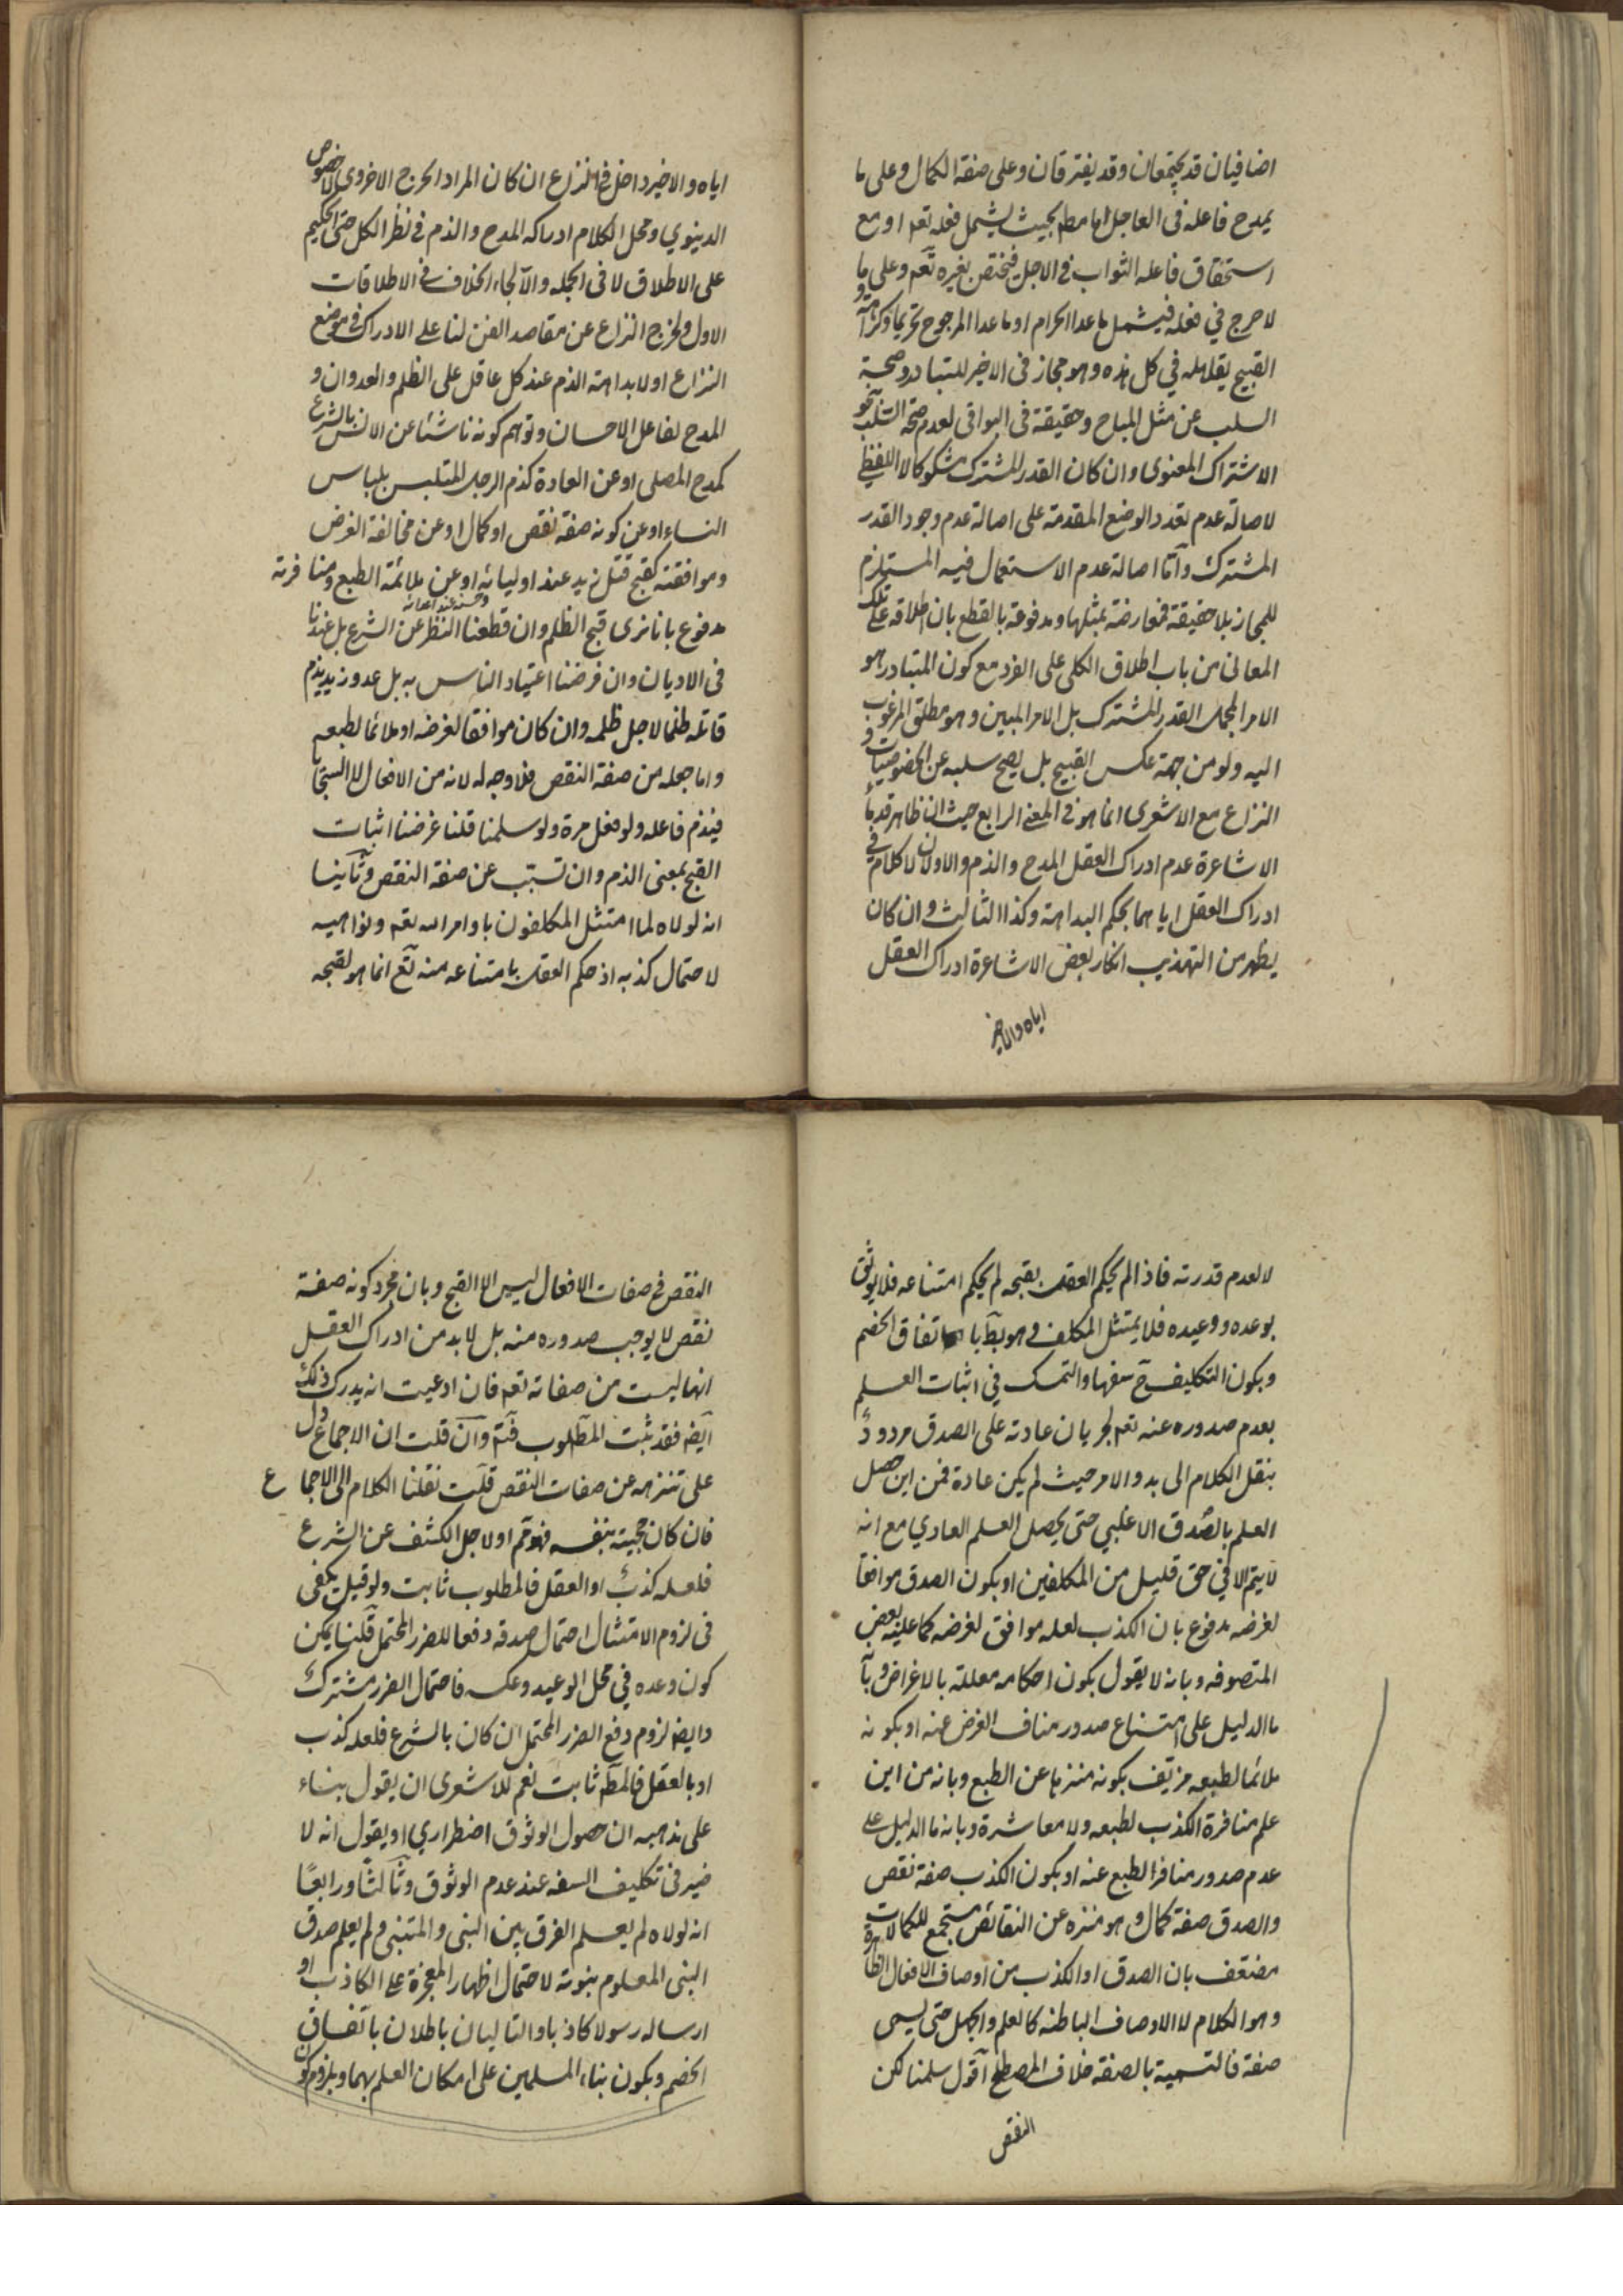 اضافيان قد يجتمعان وقد يفترقان وعلى صفة الكمال وعلى ما
يمدح فاعله فى العاجل اما مطم بحيث يشمل فعله تعم او مع
استحقاق فاعله الثواب فى الاجل فيختص بغيره تعم وعلى ما
لا حرج في فعله فيشمل ما عدا الحرام او ما عدا المرجوح تحريما وكراهة و
القبيح يقابله في كل هذه وهو مجاز فى الاخير للتبادر وصحة
السلب عن مثل المباح وحقيقة فى البواقى لعدم صحة السلب نحو
الاشتراك المعنوى وان كان القدر المشترك مشكوكا لا اللفظي
لاصالة عدم تعدد الوضع المقدمة على اصالة عدم وجود القدر
المشترك واما اصالة عدم الاستعمال فيه المستلزم
للمجاز بلا حقيقة فمعارضة بمثلها ومدفوعة بالقطع بان اطلاقه على تلك
المعانى من باب اطلاق الكلى على الفرد مع كون المتبادر هو
الامر المجمل القدر المشترك بل الامر المبين وهو مطلق المرغوب
اليه ولو من جهة عكس القبيح بل يصح سلبه عن الخصوصيات و
النزاع مع الاشعرى انما هو فى المعنى الرابع حيث ان ظاهر قدماء
الاشاعرة عدم ادراك العقل المدح والذم والاولان لا كلام في
ادراك العقل اياهما بحكم البداهة وكذا الثالث وان كان
يظهر من التهذيب انكار بعض الاشاعرة ادراك العقل
اياه والاخير
اياه والاخير داخل فى النزاع ان كان المراد الحرج الاخروى لا خصوص
الدينوي ومحل الكلام ادراكه المدح والذم فى نظر الكل حتى الحكيم
على الاطلاق لا فى الجملة والا لجاء الخلاف فى الاطلاقات
الاول ولخرج النزاع عن مقاصد الفن لنا على الادراك فى موضع
النزاع اولا بداهة الذم عند كل عاقل على الظلم والعدوان و
المدح لفاعل الاحسان وتوهم كونه ناشئا عن الانس بالشرع
كمدح المصلى او عن العادة كذم الرجل المتلبس بلباس
النساء او عن كونه صفة نقص او كمال او عن مخالفة الغرض
وموافقته كقبح قتل زيد عند اوليائه او عن ملائمة الطبع ومنافرته
وحسنه عند اعدائه
مدفوع بانا نرى قبح الظلم وان قطعنا النظر عن الشرع بل عندنا
فى الاديان وان فرضنا اعتياد الناس به بل عدو زيد يذم
قاتله ظلما لاجل ظلمه وان كان موافقا لغرضه او ملائما لطبعه
واما جعله من صفة النقص فلا وجه له لانه من الافعال لا السجايا
فيذم فاعله ولو فعل مرة ولو سلمنا قلنا غرضنا اثبات
القبح بمعنى الذم وان تسبب عن صفة النقص وثانيا
انه لولاه لما امتثل المكلفون باوامر الله تعم ونواهيه
لاحتمال كذبه اذ حكم العقل بامتناعه منه تعم انما هو لقبحه
لا لعدم قدرته فاذا لم يحكم العقل بقبحه لم يحكم امتناعه فلا يوثق
بوعده ووعيده فلا يمتثل المكلف وهو بط باتفاق الخصم
وبكون التكليف ح سفها والتمسك في اثبات العلم
بعدم صدوره عنه تعم لجريان عادته على الصدق مردود
بنقل الكلام الى بدو الامر حيث لم يكن عادة فمن اين حصل
العلم بالصدق الاغلبى حتى يحصل العلم العادي مع انه
لا يتم الا في حق قليل من المكلفين او بكون الصدق موافقا
لغرضه مدفوع بان الكذب لعله موافق لغرضه كما عليه بعض
المتصوفه وبانه لا يقول بكون احكامه معللة بالاغراض وبان
ما الدليل على امتناع صدور مناف الغرض عنه او بكونه
ملائما لطبعه مزيف بكونه منزها عن الطبع وبانه من اين
علم منافرة الكذب لطبعه ولا معاشرة وبانه ما الدليل على
عدم صدور منافر الطبع عنه او بكون الكذب صفة نقص
والصدق صفة كمال وهو منزه عن النقائص مستجمع للكمالات
مضعف بان الصدق او الكذب من اوصاف الافعال الظاهرة
وهو الكلام لا الاوصاف الباطنة كالعلم والجهل حتى يسمى
صفة فالتسمية بالصفة خلاف المصطلح اقول سلمنا لكن
النقص
النقص فى صفات الافعال ليس الا القبح وبان مجرد كونه صفة
نقص لا يوجب صدوره منه بل لا بد من ادراك العقل
انها ليست من صفاته تعم فان ادعيت انه يدرك ذلك
ايضا فقد ثبت المطلوب فتم وان قلت ان الاجماع دل
على تنزهه عن صفات النقص قلت نقلنا الكلام الى الاجماع
فان كان حجيته بنفسه فهو تم او لاجل الكشف عن الشرع
فلعله كذب او العقل فالمطلوب ثابت ولو قيل يكفى
فى لزوم الامتثال احتمال صدقه دفعا للضرر المحتمل قلنا يمكن
كون وعده في محل الوعيد وعكسه فاحتمال الضرر مشترك
وايضا لزوم دفع الضرر المحتمل ان كان بالشرع فلعله كذب
او بالعقل فالمط ثابت نعم للاشعرى ان يقول بناء
على مذهبه ان حصول الوثوق اضطراري او يقول انه لا
ضير فى تكليف السفه عند عدم الوثوق وثالثا ورابعا
انه لولاه لم يعلم الفرق بين النبى والمتنبى ولم يعلم صدق
النبى المعلوم بنوته لاحتمال اظهار المعجزة على الكاذب او
ارساله رسولا كاذبا والتاليان باطلان باتفاق
الخصم وبكون بناء المسلمين على امكان العلم بهما وبلزوم كون